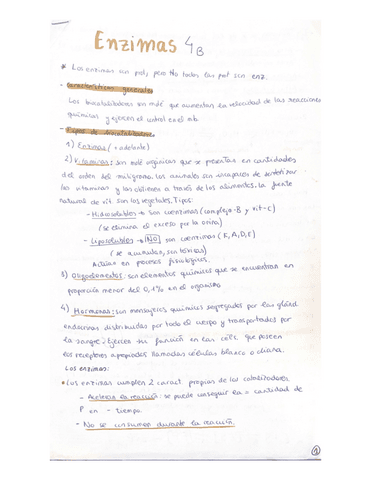 Enzimas 4B
* Las enzimas son prot, pero NO todas las prot son enz.
- Características generales
Los biocatalizadores son moléc que aumentan la velocidad de las reacciones
químicas y ejercen el control en el
- Tipos de biocatalizadores
1) Enzimas (+ adelante)
2) Vitaminas: son moléc orgánicas que se presentan en cantidades
del orden del miligramo. Los animales son incapaces de sintetizar
las vitaminas y las obtienen a través de los alimentos. La fuente
natural de vit. son los vegetales. Tipos:
- Hidrosolubles → son coenzimas (complejo-B y vit-C)
(se elimina el exceso por la orina)
- Liposolubles → NO son coenzimas (K, A, D, E)
(se acumulan, son tóxicas)
Actúan en procesos fisiológicos.
3) Oligoelementos: son elementos químicos que se encuentran en
proporción menor del 0,1% en el organismo
4) Hormonas: son mensajeros químicos segregados por las glánd
endocrinas distribuidas por todo el cuerpo y transportados por
la sangre. Ejercen su función en las céls. que poseen
los receptores apropiados llamadas células blanco o diana.
Las enzimas:
* Las enzimas cumplen 2 caract. propias de los catalizadores
- Aceleran la reacción: se puede conseguir la = cantidad de
P en - tiempo
- No se consumen durante la reacción.
1